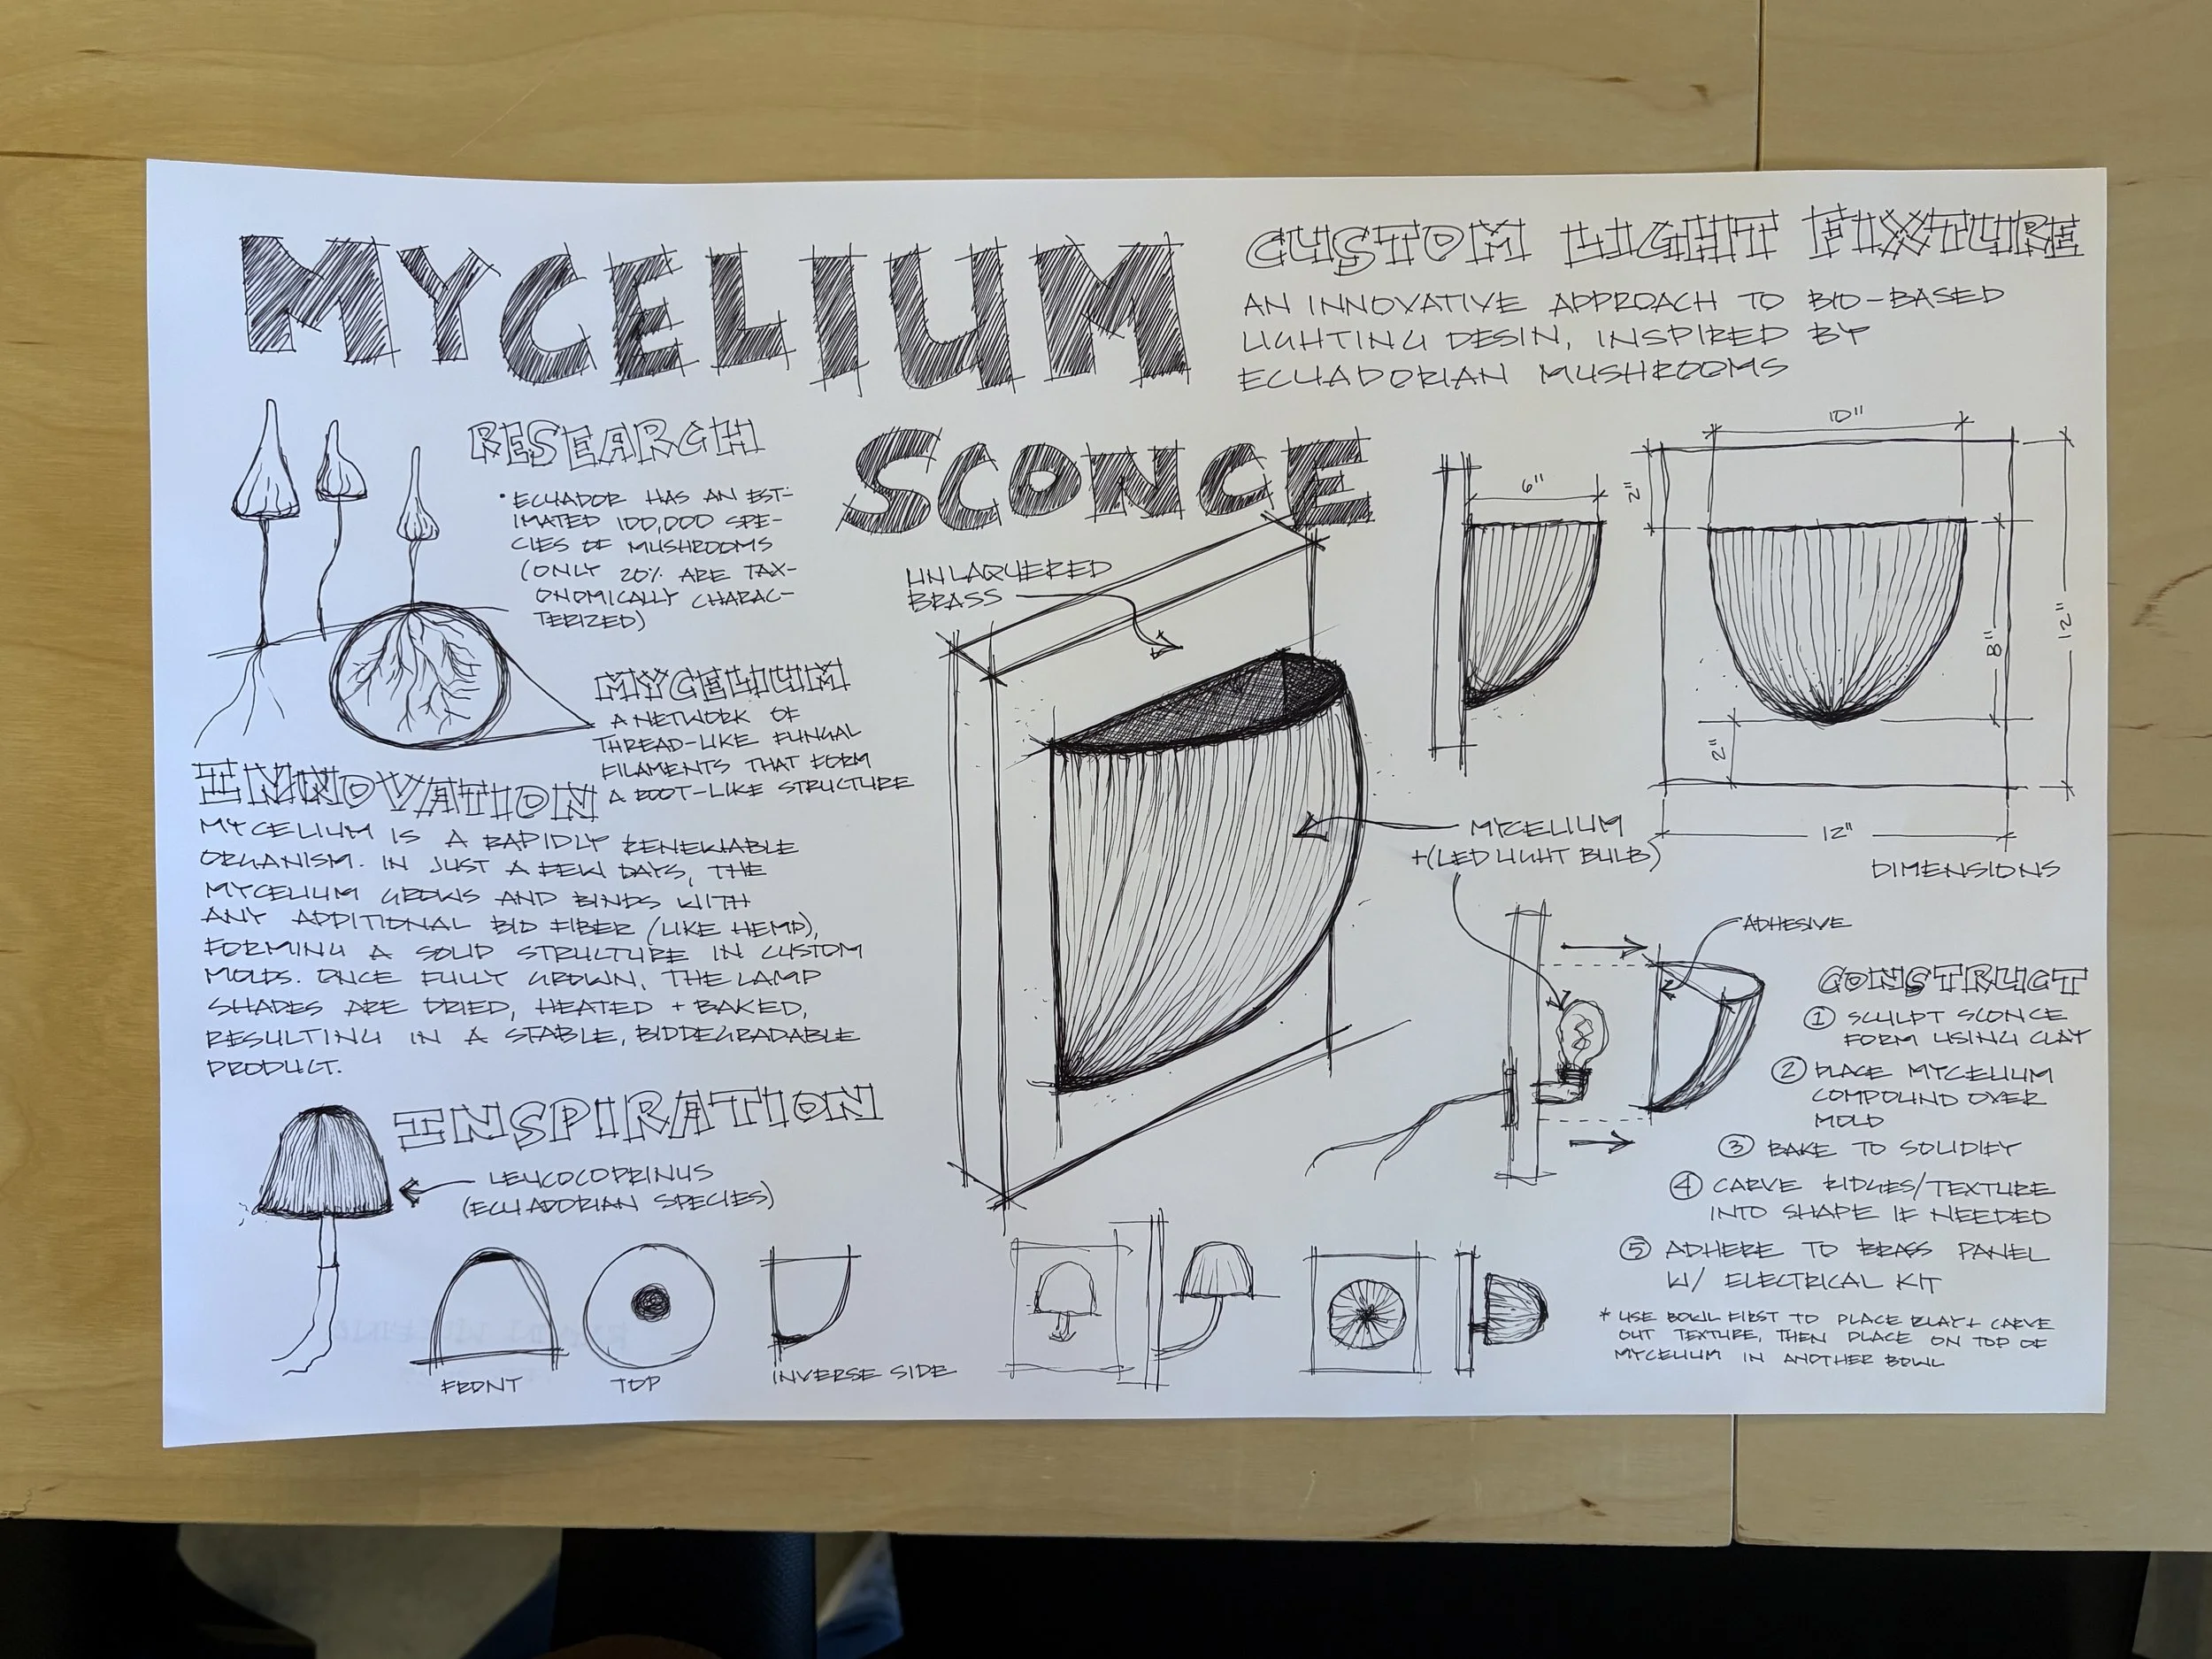 MYCELIUM
SCONCE
CUSTOM LIGHT FIXTURE
AN INNOVATIVE APPROACH TO BIO-BASED
LIGHTING DESIN, INSPIRED BY
ECUADORIAN MUSHROOMS
RESEARCH
• ECUADOR HAS AN EST-
IMATED 100,000 SPE-
CIES OF MUSHROOMS
(ONLY 20% ARE TAX-
ONOMICALLY CHARAC-
TERIZED)
MYCELIUM
A NETWORK OF
THREAD-LIKE FUNGAL
FILAMENTS THAT FORM
A ROOT-LIKE STRUCTURE
INNOVATION
MYCELIUM IS A RAPIDLY RENEWABLE
ORGANISM. IN JUST A FEW DAYS, THE
MYCELIUM GROWS AND BINDS WITH
ANY ADDITIONAL BIO FIBER (LIKE HEMP),
FORMING A SOLID STRUCTURE IN CUSTOM
MOLDS. ONCE FULLY GROWN, THE LAMP
SHADES ARE DRIED, HEATED + BAKED,
RESULTING IN A STABLE, BIODEGRADABLE
PRODUCT.
INSPIRATION
LEUCOCOPRINUS
(ECUADORIAN SPECIES)
FRONT
TOP
INVERSE SIDE
UNLAQUERED
BRASS
6"
10"
2"
8"
12"
2"
12"
DIMENSIONS
MYCELIUM
+(LED LIGHT BULB)
ADHESIVE
CONSTRUCT
① SCULPT SCONCE
FORM USING CLAY
② PLACE MYCELIUM
COMPOUND OVER
MOLD
③ BAKE TO SOLIDIFY
④ CARVE RIDGES/TEXTURE
INTO SHAPE IF NEEDED
⑤ ADHERE TO BRASS PANEL
W/ ELECTRICAL KIT
* USE BOWL FIRST TO PLACE CLAY + CARVE
OUT TEXTURE, THEN PLACE ON TOP OF
MYCELIUM IN ANOTHER BOWL